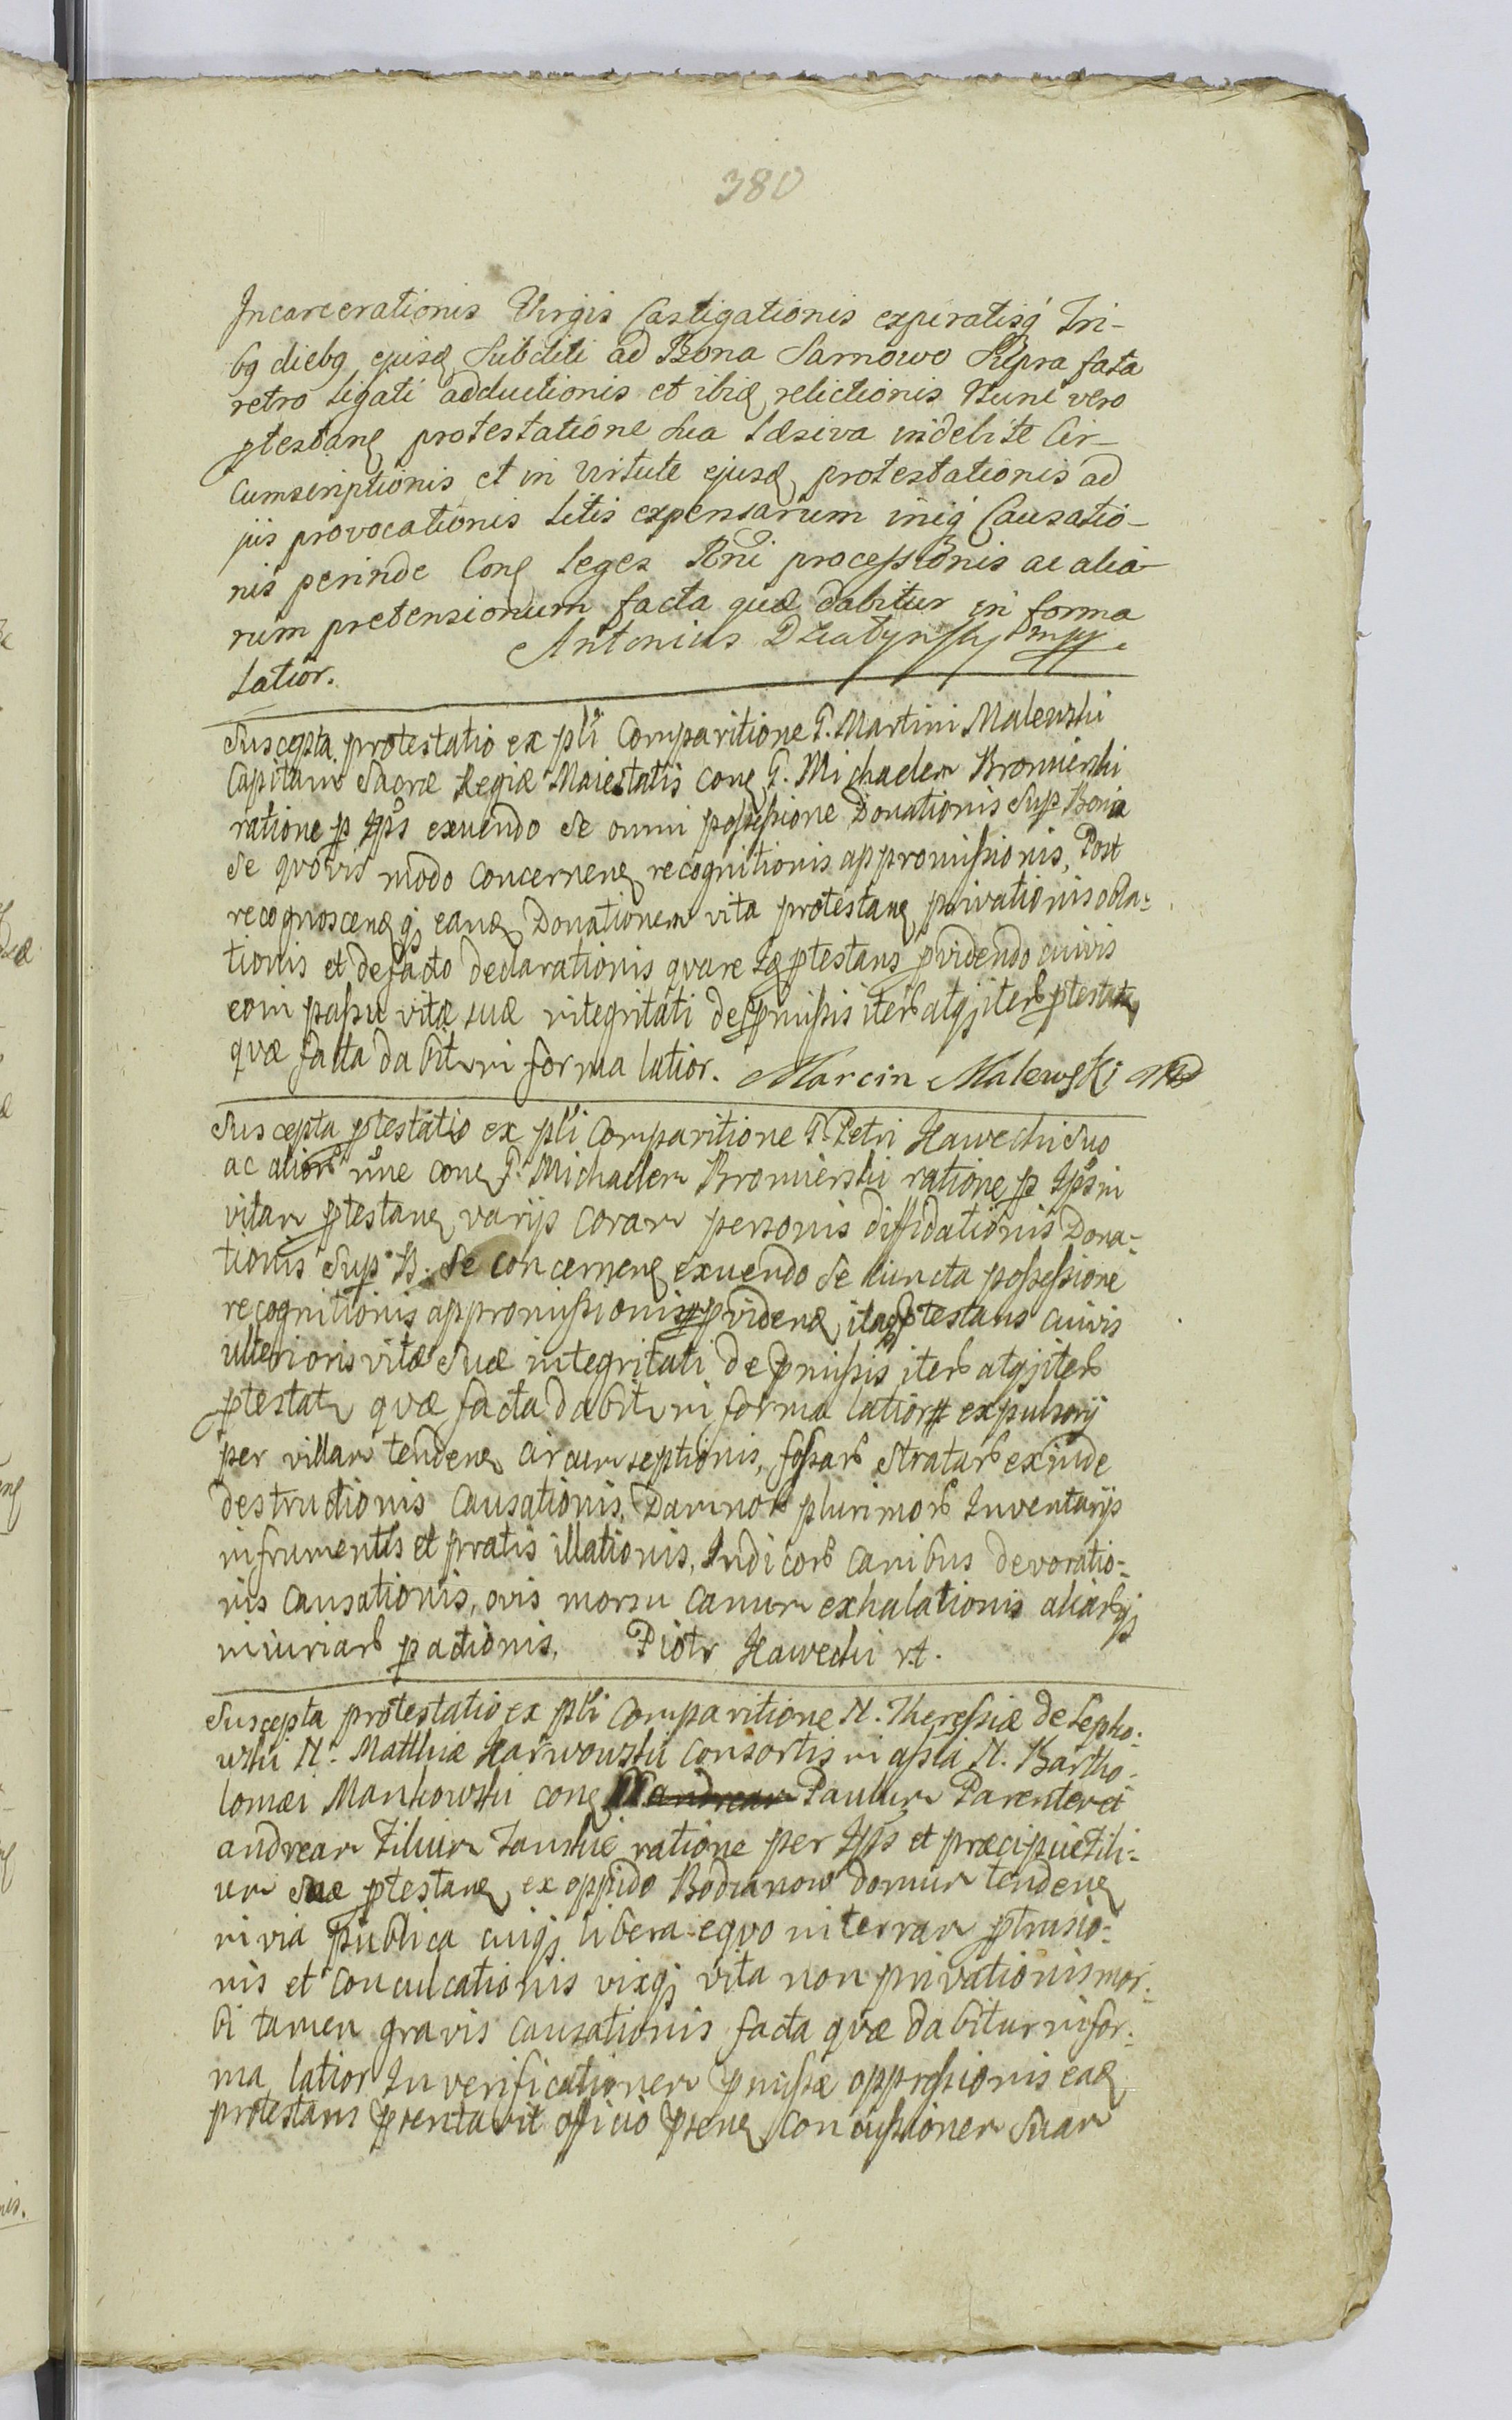 380
Incarcerationis Virgis Castigationis expiratisq Tri-
bq diebq ejusq Subditi ad Bona Sarnowo Supra fata
retro ligati adductionis et ibiq relictionis Nunc vero
ptestanq protestatione sua Læsiva indebite Cir-
cumscriptionis et in Virtute ejusq protestationis ad
jus provocationis Litis expensarum iniq Causatio-
nis perinde Conq Leges Rni processionis ac alia-
rum pretensionum facta quæ dabitur in forma
Latior. Antonius Działynsky mpp.
Suscepta protestatio ex pli Comparitione G. Martini Malewski
Capitani Sacræ Regiæ Maiestatis conq G. Michaelem Bromierski
ratione p Ips exuendo se omni possessione Donationis Sup Bona
se quovis modo concernenq recognitionis appromissionis, Post
recognoscenq qj eanq Donationem vita protestanq privationis obla-
tionis et defacto declarationis quare Iq ptestans pvidendo cuivis
eoin passu vitæ suæ integritati de pmissis iterb atqj iterb ptestatr
quæ facta dabitr in forma latior. Marcin Malewski mp
Suscepta ptestatio ex pli Comparitione G. Petri Hawecki suo
ac aliorb nne conq G. Michaelem Bromierski ratione p Ips in
vitam ptestanq varijs coram personis diffidationis Dona-
tionis Sup B. se concernenq exuendo se cuncta possessione
recognitionis appromissionis pvidenq itaq ptestans cuivis
ulterioris vitæ suæ integritati de pmissis iterb atqj iterb
ptestatr quæ facta dabitr in forma latior # expulsorij
per villam tendenq circumseptionis, fossarb stratarb exinde
destructionis causationis, Damnorb plurimorb Inventarijs
in frumentis et pratis illationis, Indicorb canibus devoratio-
nis causationis, ovis morsu canum exhalationis aliarbqj
iniuriarb pactionis. Piotr Hawecki rt.
Suscepta protestatio ex pli Comparitione N. Theressiæ de Lepko-
wski N. Matthiæ Karwowski consortis in assia N. Bartho-
lomæi Mankowski conq Andream Paulum Parentem et
andream Filium Janskie ratione per Ips et præcipue Fili-
um suæ ptestanq ex oppido Bodzanow domum tendenq
in via publica cuiqj libera equo in terram ptrusio-
nis et conculcationis vixqj vita non privationis mor-
bi tamen gravis causationis facta quæ dabitur in for-
ma latior In verificationem pmissæ oppressionis eaq
protestans pæentavit officio psenq concussionem suam